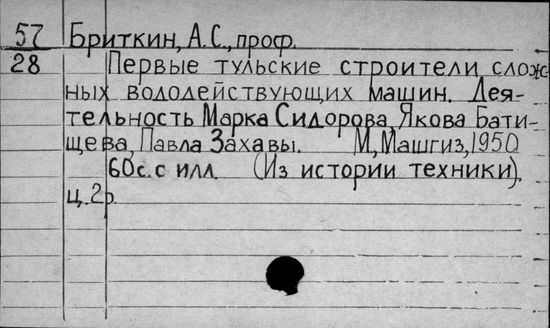 57 Бриткин, А.С., проф.
28 Первые тульские строители слож-
ных вододействующих машин. Дея-
тельность Марка Сидорова, Якова Бати-
щева, Павла Захавы. М, Машгиз, 1950
60с. с илл. (Из истории техники).
ц. 2р.